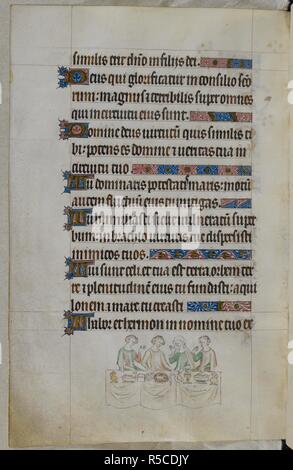 similis erit deo in filijs dei.
Deus qui glorificatur in consilio sco
rum: magnus et terribilis super omnes
qui in circuitu eius sunt.
Domine deus uirtutum quis similis ti
bi: potens es domine et ueritas tua in
circuitu tuo
Tu dominaris potestati maris: motum
autem fluctuum eius tu mitigas.
Tu humiliasti sicut uulneratum super
bum: in brachio uirtutis tue dispersisti
inimicos tuos.
Tui sunt celi et tua est terra orbem ter
re et plenitudinem eius tu fundasti: aqui
lonem et mare tu creasti
Thabor et hermon in nomine tuo ex
alamy
Image ID: R5CDJY
www.alamy.com